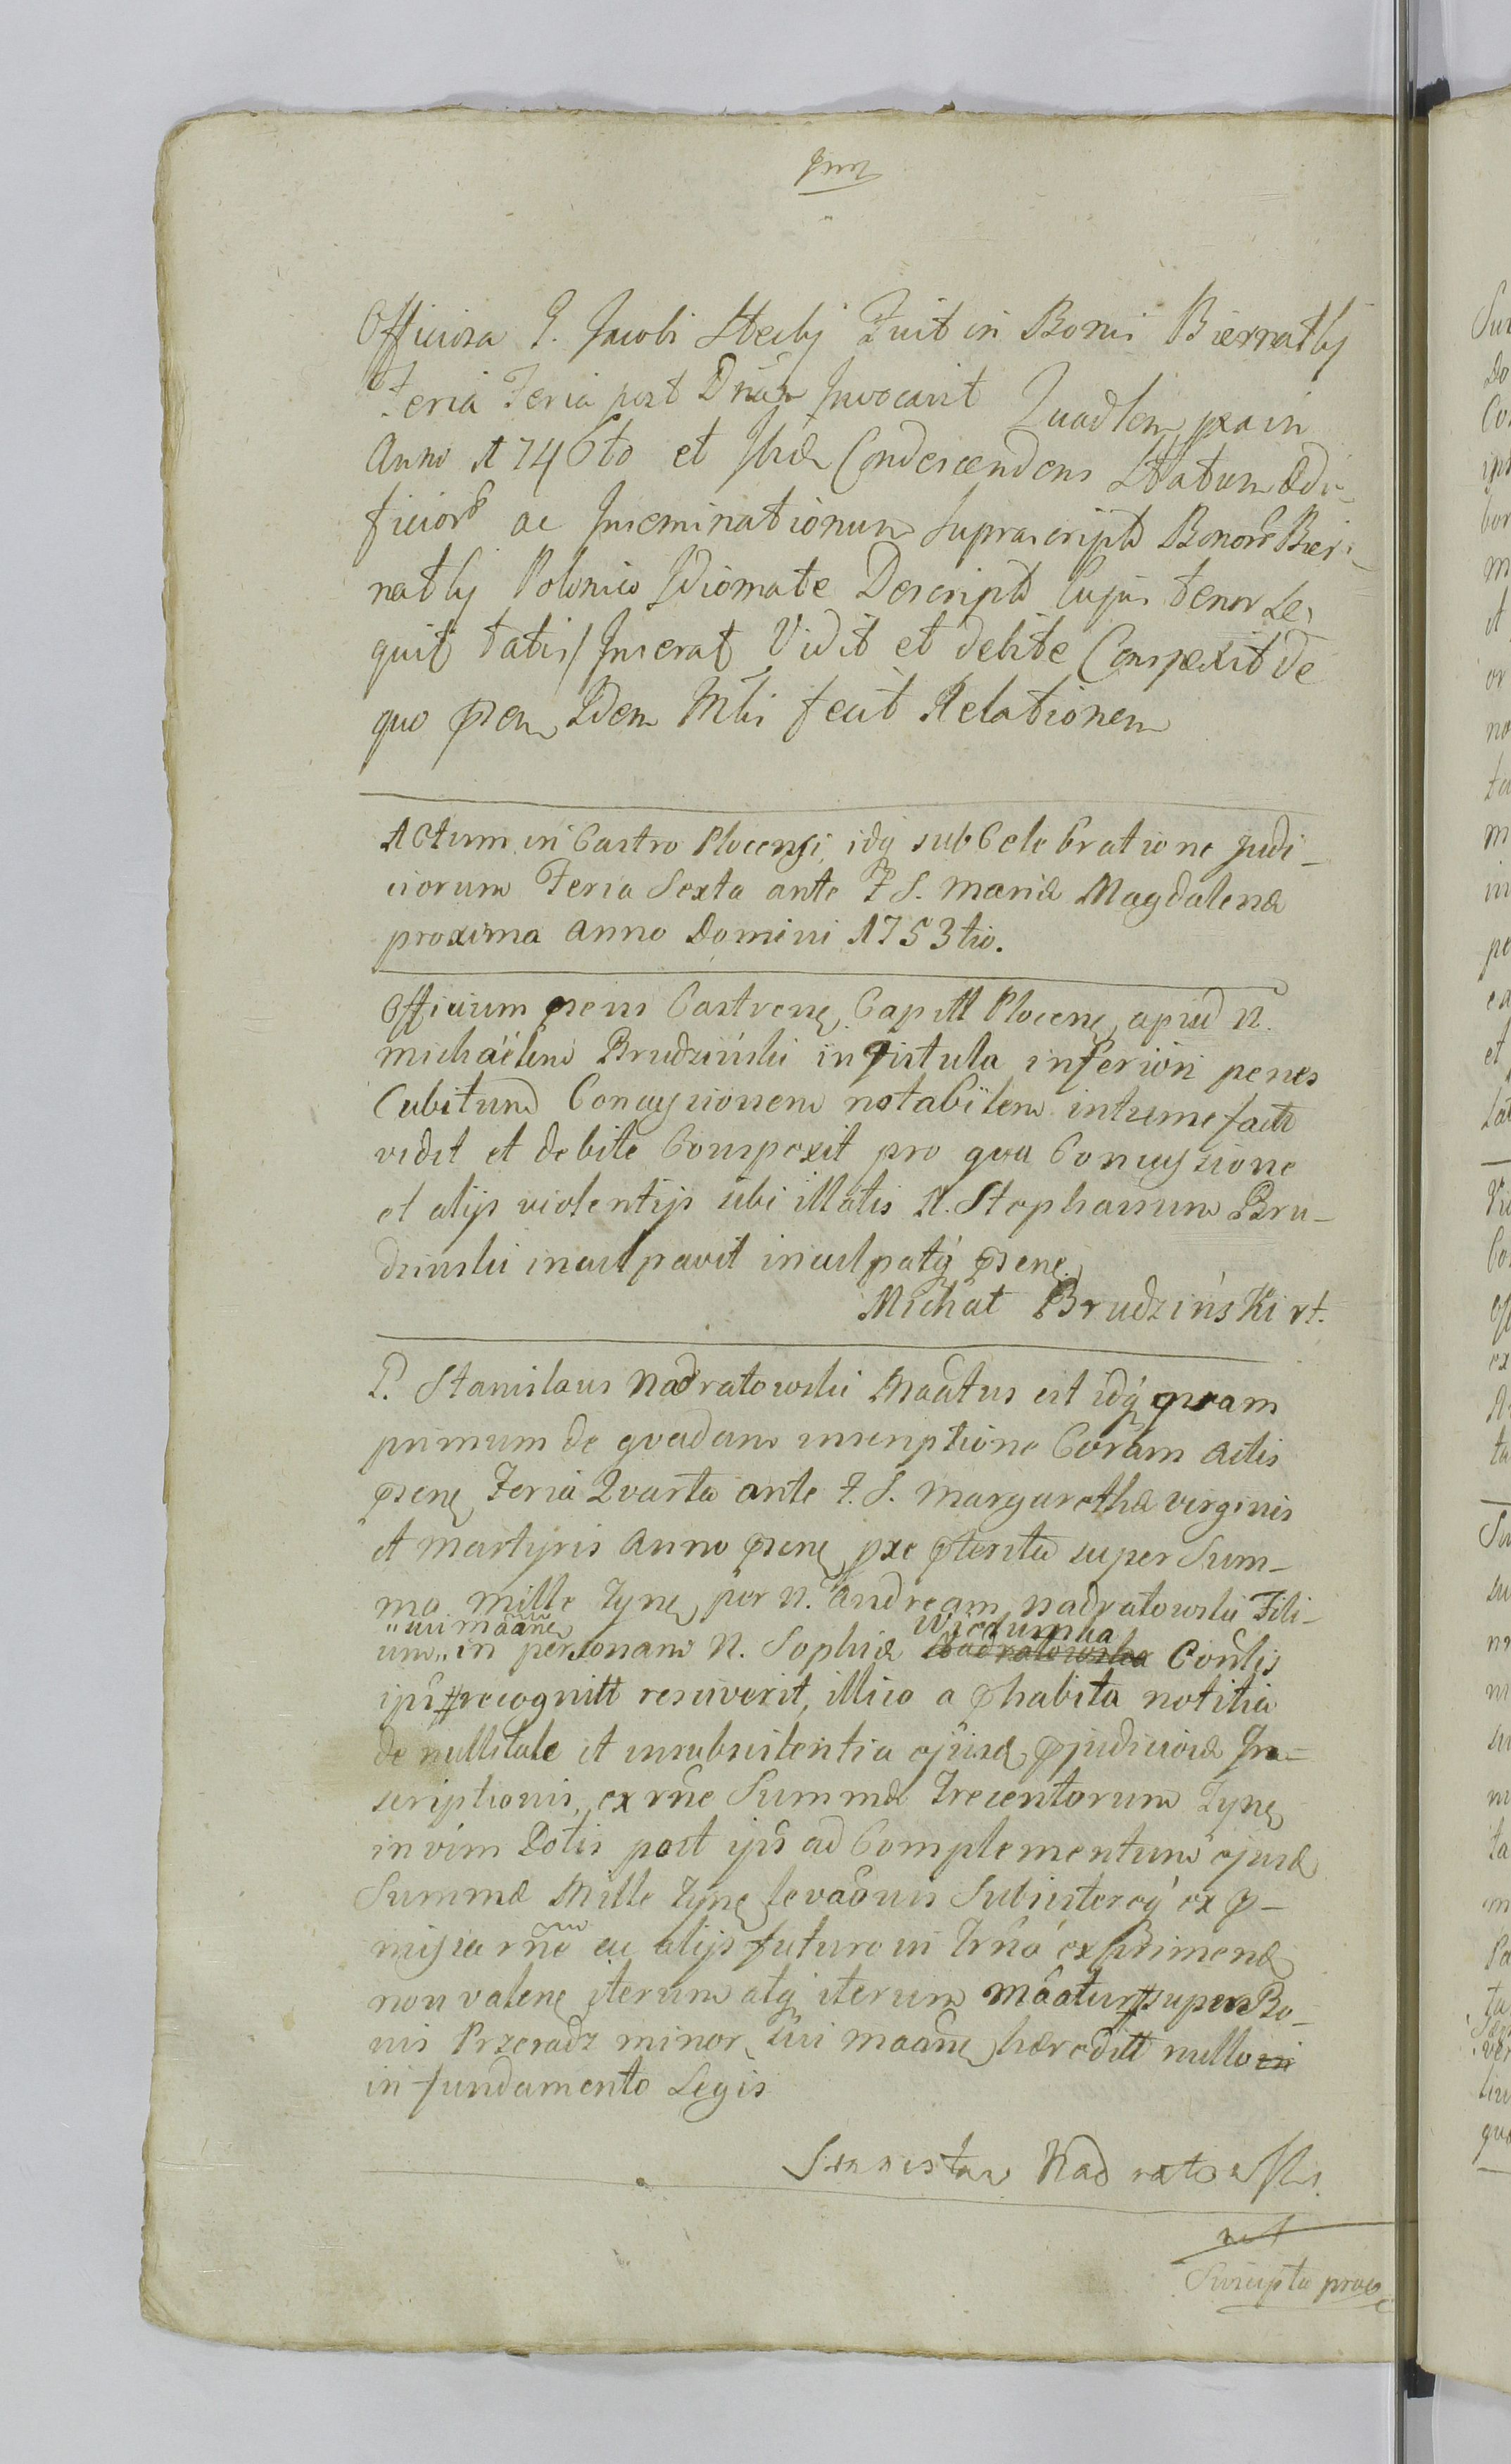 Officiosa G. Jacobi Steckj Fuit in Bonis Biernatky
Feria Feria post Dnãm Invocavit Quadlem pxa in
Anno 1746to et Ibid Condescendens Statum Ædi-
ficior ac Inseminationum Suprascript Bonor Bier-
natky Polonico Idiomate Descript Cujus tenor Se-
quit talis / Inserat Vidit et debite Conspexit de
quo psen Idem Mihi fecit Relationem
Actum in Castro Plocensi idq sub Celebratione Judi-
ciorum Feria Sexta ante F S. Mariæ Magdalenæ
proxima Anno Domini 1753tio.
Officium psens Castrense Capitt Plocense apud N.
Michaëlem Brudziński in fistula inferiori penes
Cubitum Concussionem notabilem intumefact
vidit et debite Conspexit pro qua Concussione
et alijs violentijs sibi illatis N. Stephanum Bru-
dzinski inculpavit inculpatq psens
Michał Brudzińskі rt.
P. Stanislaus Nadratowski Maãtus est idq quam
primum de quadam inscriptione Coram Actis
psens Feria Quarta ante F. S. Margarethæ virginis
et Martyris Anno psens præterita super Sum-
ma mille Tynf per N. Andream Nadratowski Fili-
um „sui maãne in personam N. Sophiæ Nadratowska Wiedumska Confis
ips recognitt resciverit, illico a phabita notitia
de nullitate et insubsistentia ejusd pjudiciosæ In-
scriptionis, ex rñe Summæ Trecentorum Tynf
in vim Dotis post ips ad Complementum ejusd
Summæ Mille Tynf levaõnis Subinferoq ex p-
missa rñe ac alijs futuro in Trño exprimend
non valens iterum atq iterum maãtur super Bo-
nis Przeradz minor sui maãne hæreditt nullo in
in fundamento Legis
Stanisław Nadratowski
Suscepta